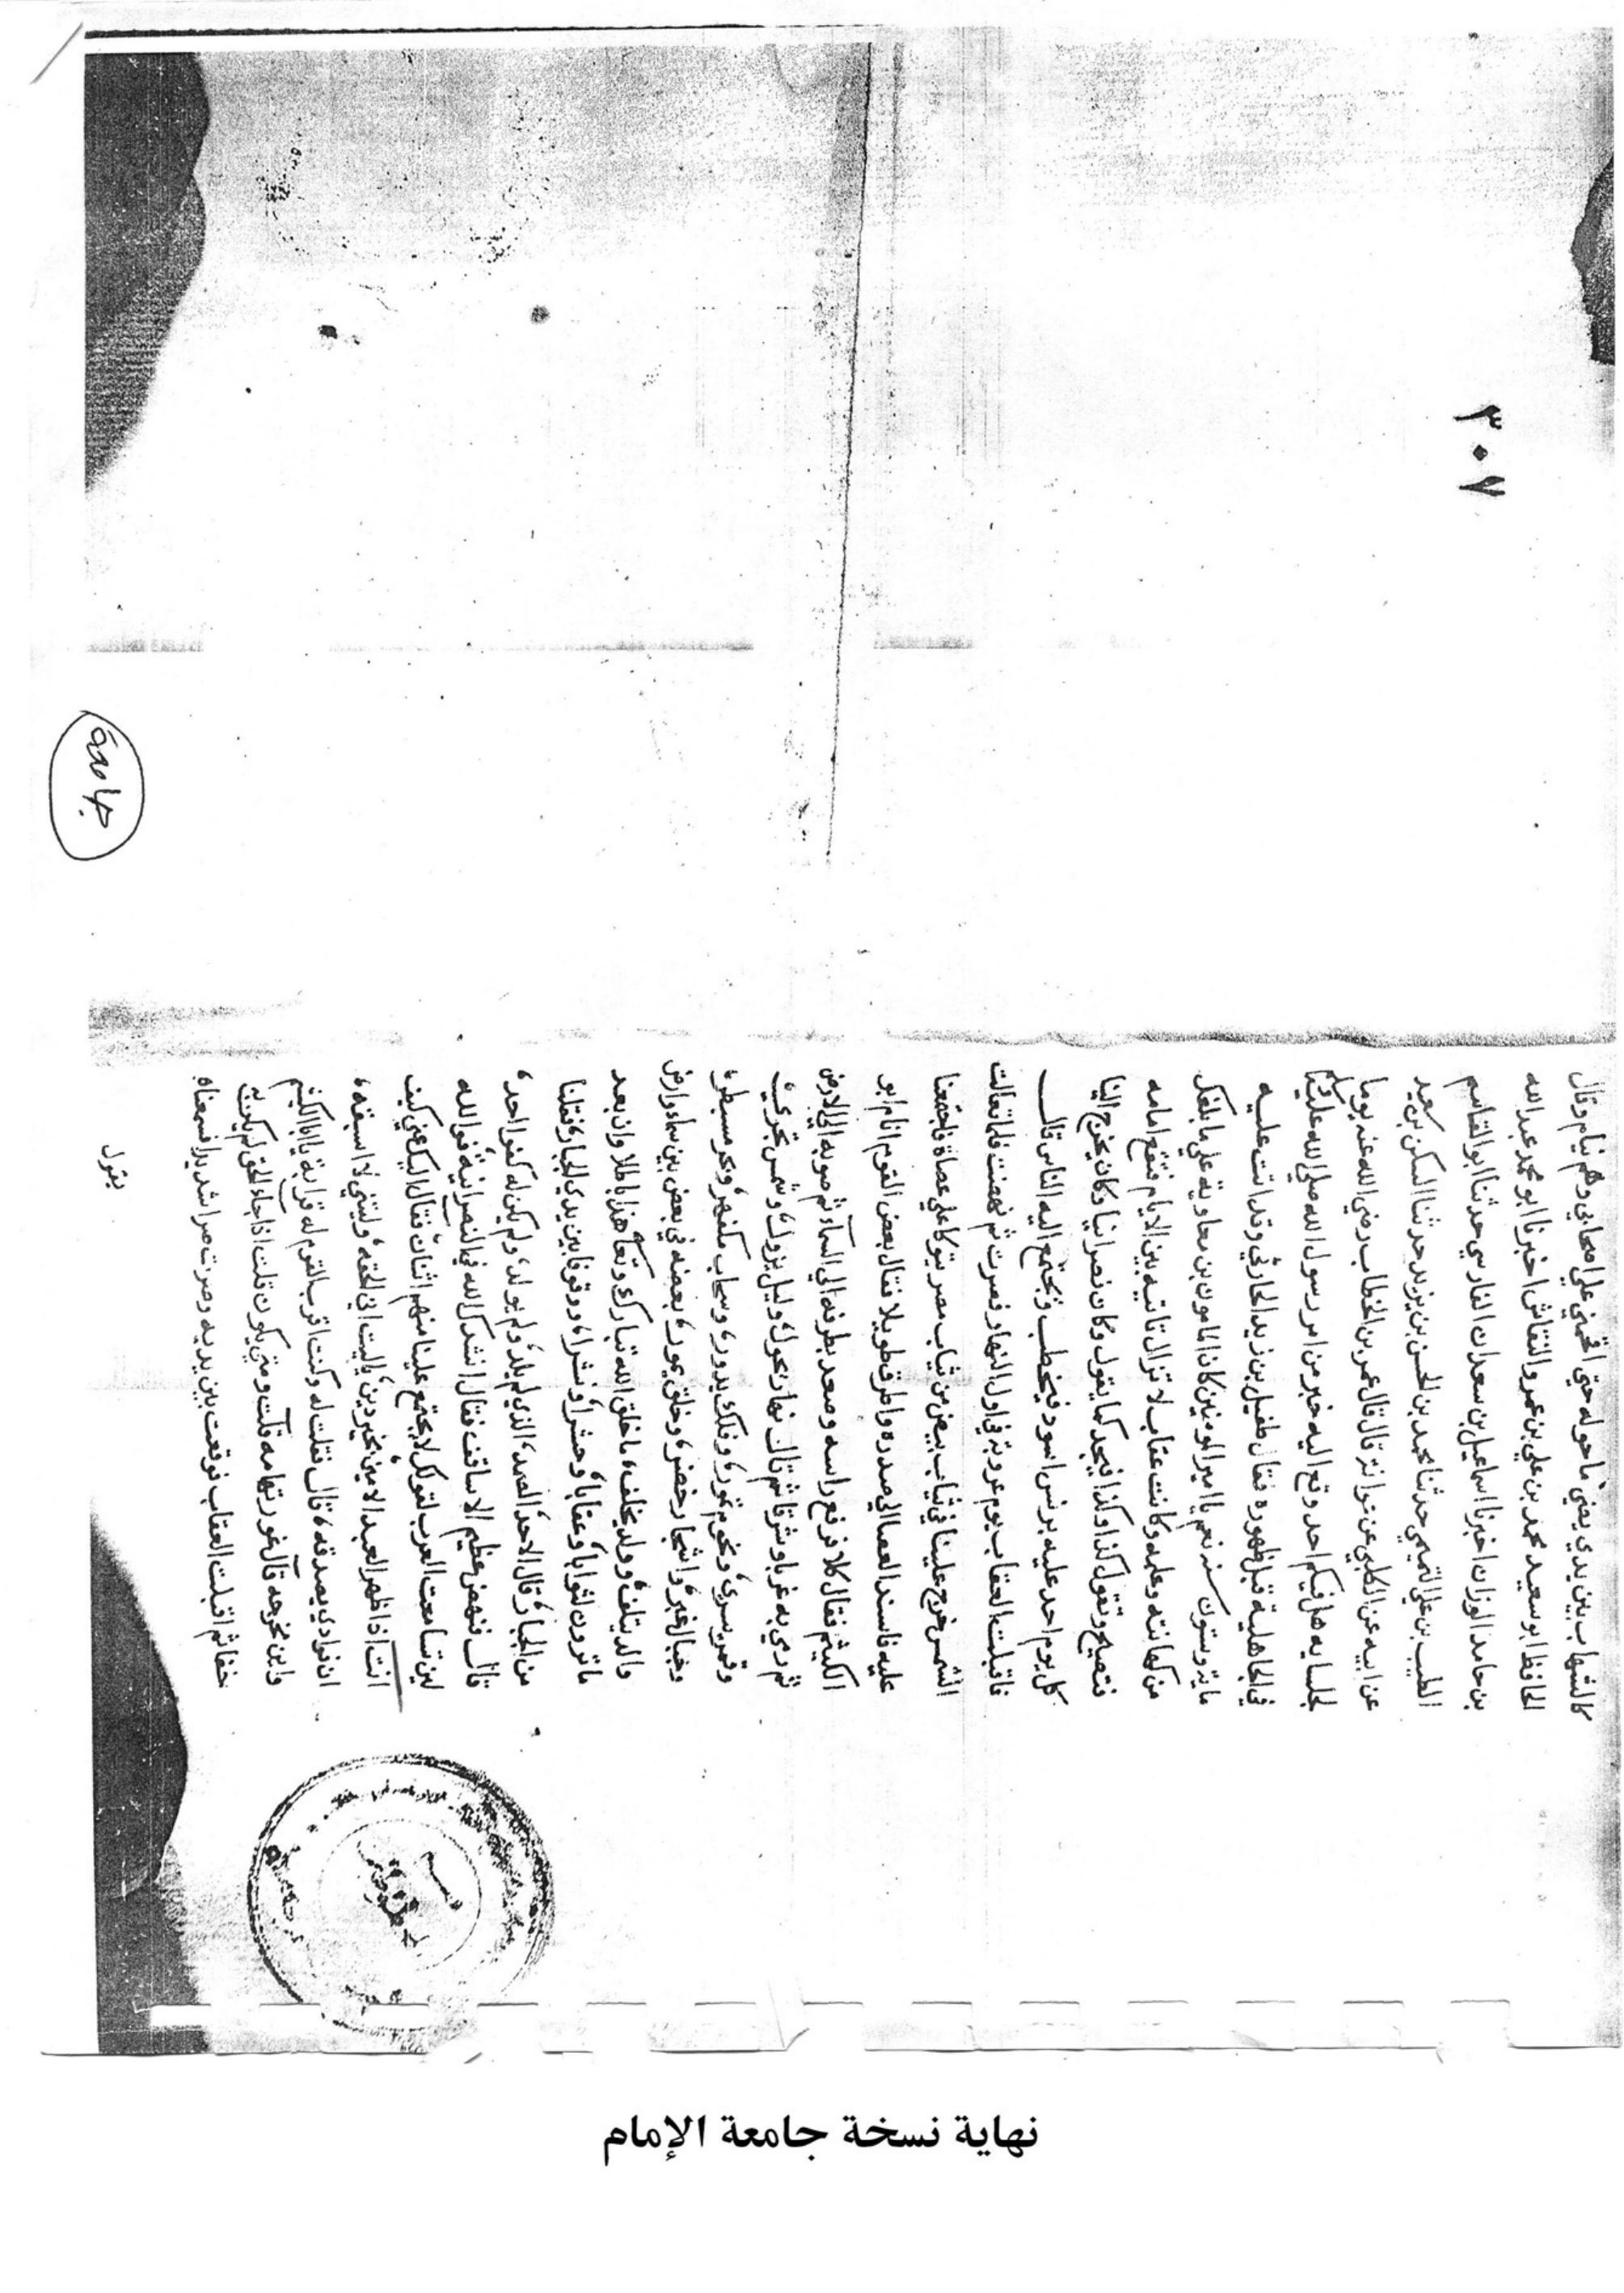 ٣٠٧
كالشهاب بين يدي يضي ما حوله حتي اقحمني علي اصحابي وهم نيام وقال
الحافظ ابو سعيد محمد بن علي بن عمرو النقاش اخبرنا ابو محمد عبد الله
بن حامد الوزان اخبرنا اسماعيل بن سعدان الفارسي حدثنا ابو القاسم
الطيب بن علي التميمي حدثنا محمد بن الحسن بن يزيد حدثنا السكن بن سعيد
عن ابيه عن الكلبي عن عوانة قال قال عمر بن الخطاب رضي الله عنه يوما
لجلسايه هل فيكم احد وقع اليه خبر من امر رسول الله صلي الله عليه وسلم
في الجاهلية قبل ظهوره فقال طفيل بن زيد الحارثي وقد اتت عليه
ماية وستون سنة نعم يا امير المومنين كان المامون بن معاوية علي ما بلغك
من كهانته وعلمه وكانت عقاب لا تزال تاتيه بين الايام فتقع امامه
فتصيح وتقول كذا وكذا فيجد كما يقول وكان نصرانيا وكان يخرج الينا
كل يوم احد عليه برنس اسود فيخطب ويجتمع اليه الناس قال
فاقبلت العقاب يوم عروبة في اول النهار فصرت ثم نهضت فلما تعالت
الشمس خرج علينا في ثياب بيض من ثياب مصر يتوكا علي عصاة فاجتمعنا
عليه فاسند العصا الي صدره واطرق طويلا فقال بعض القوم انام ابو
الكيثم فقال كلا فرفع راسه وصعد بطرفه الي السماء ثم صوبه الي الارض
ثم رمي به غربا وشرقا ثم قال نهار يحول، وليل يزول، وشمس تجري،
وقمر يسري، ونجوم تمور، وفلك يدور، وسحاب مكفهر، وبحر مسبطر،
وجبال غبر، واشجار خضر، وخلق يمور، بعضه في بعض بين سماء وارض
والد يتلف، وولد يخلف، ما خلق الله تبارك وتعالي هذا باطلا وان بعد
ما ترون لثوابا، وعقابا، وحشرا، ونشرا، ووقوفا بين يدي الجبار، فقلنا
من الجبار، قال الاحد، الصمد، الذي لم يلد، ولم يولد، ولم يكن له كفوا احد،
قال فنهض عظيم الاساقف فقال انشدك الله في النصرانية، فوالله
لين تسامعت العرب لقولك لا يجتمع علينا منهم اثنان، فقال اليك عني كيف
انت، اذا ظهر العبد الامين، بخير دين، ياليت اني الحقه، وليتني لا اسبقه،
ان فوادي يصدقه، قال فقلت له وكنت اقرب القوم له قرابة يا ابا الكيثم
واين مخرجه قال غور تهامه قلت ومتي يكون قلت اذا جاء الحق لم يكن به
خفا ثم اقبلت العقاب فوقعت بين يديه وصرت صرا شديدا فسمعناه
يقول
جامعة
نهاية نسخة جامعة الإمام